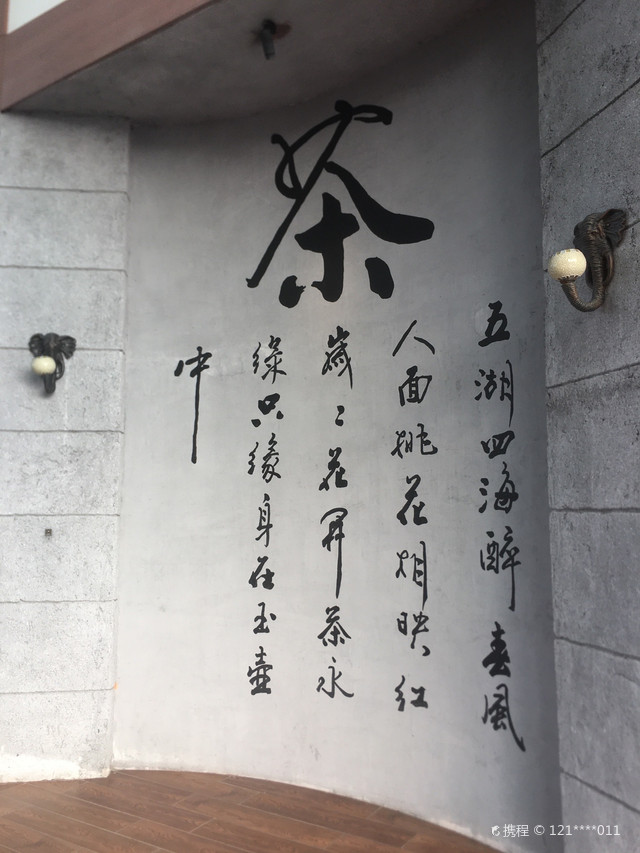 茶
五湖四海醉春風
人面桃花相映红
歲々花開茶永
綠只缘身在玉壺
中
携程 © 121****011